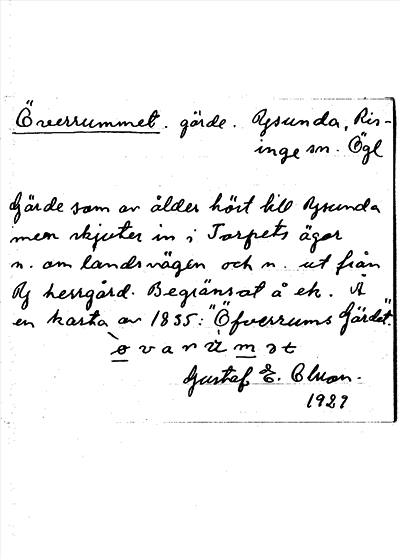 Överrummet. gärde. Rysunda, Ris-
inge sn. Ögl
Gärde som av ålder hört till Rysunda
men skjuter in i Torpets ägor
n. om landsvägen och n. ut från
Ry herrgård. Begränsat å ek. A
en karta av 1835: "Öfverrums Gärdet".
Gustaf E.
1929